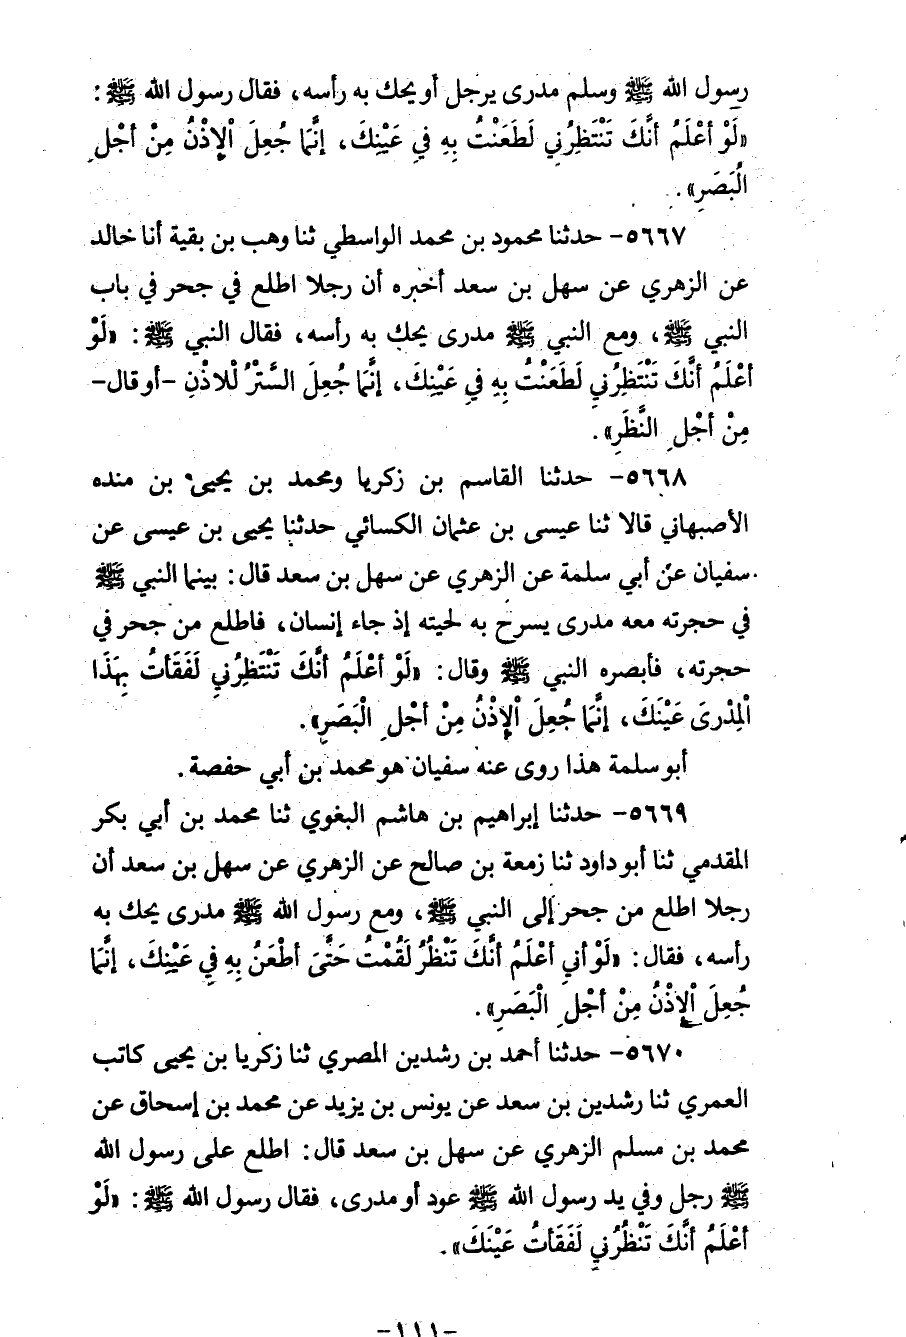 رسول الله ﷺ وسلم مدرى يرجل أو يحك به رأسه، فقال رسول الله ﷺ :
«لَوْ أعْلَمُ أنَّكَ تَنْتَظِرُنِي لَطَعَنْتُ بِهِ فِي عَيْنِكَ، إنَّمَا جُعِلَ الْإِذْنُ مِنْ أجْلِ
الْبَصَرِ».
٥٦٦٧- حدثنا محمود بن محمد الواسطي ثنا وهب بن بقية أنا خالد
عن الزهري عن سهل بن سعد أخبره أن رجلا اطلع في جحر في باب
النبي ﷺ، ومع النبي ﷺ مدرى يحك به رأسه، فقال النبي ﷺ: «لَوْ
أعْلَمُ أنَّكَ تَنْتَظِرُنِي لَطَعَنْتُ بِهِ فِي عَيْنِكَ، إنَّمَا جُعِلَ السَّتْرُ لْلاذْنِ -أو قال-
مِنْ أجْلِ النَّظَرِ».
٥٦٦٨- حدثنا القاسم بن زكريا ومحمد بن يحيى بن منده
الأصبهاني قالا ثنا عيسى بن عثمان الكسائي حدثنا يحيى بن عيسى عن
سفيان عن أبي سلمة عن الزهري عن سهل بن سعد قال: بينما النبي ﷺ
في حجرته معه مدرى يسرح به لحيته إذ جاء إنسان، فاطلع من جحر في
حجرته، فأبصره النبي ﷺ وقال: «لَوْ أعْلَمُ أنَّكَ تَنْتَظِرُنِي لَفَقَأتُ بِهَذَا
الْمِدْرىَ عَيْنَكَ، إنَّمَا جُعِلَ الْإِذْنُ مِنْ أجْلِ الْبَصَرِ».
أبو سلمة هذا روى عنه سفيان هو محمد بن أبي حفصة.
٥٦٦٩- حدثنا إبراهيم بن هاشم البغوي ثنا محمد بن أبي بكر
المقدمي ثنا أبو داود ثنا زمعة بن صالح عن الزهري عن سهل بن سعد أن
رجلا اطلع من جحر إلى النبي ﷺ، ومع رسول الله ﷺ مدرى يحك به
رأسه، فقال: «لَوْ أني أعْلَمُ أنَّكَ تَنْظُرُ لَقُمْتُ حَتَّىَ أطْعَنُ بِهِ فِي عَيْنِكَ، إنَّمَا
جُعِلَ الْإِذْنُ مِنْ أجْلِ الْبَصَرِ».
٥٦٧٠- حدثنا أحمد بن رشدين المصري ثنا زكريا بن يحيى كاتب
العمري ثنا رشدين بن سعد عن يونس بن يزيد عن محمد بن إسحاق عن
محمد بن مسلم الزهري عن سهل بن سعد قال: اطلع على رسول الله
ﷺ رجل وفي يد رسول الله ﷺ عود أو مدرى، فقال رسول الله ﷺ: «لَوْ
أعْلَمُ أنَّكَ تَنْظُرُنِي لَفَقَأتُ عَيْنَكَ».
-١١١-